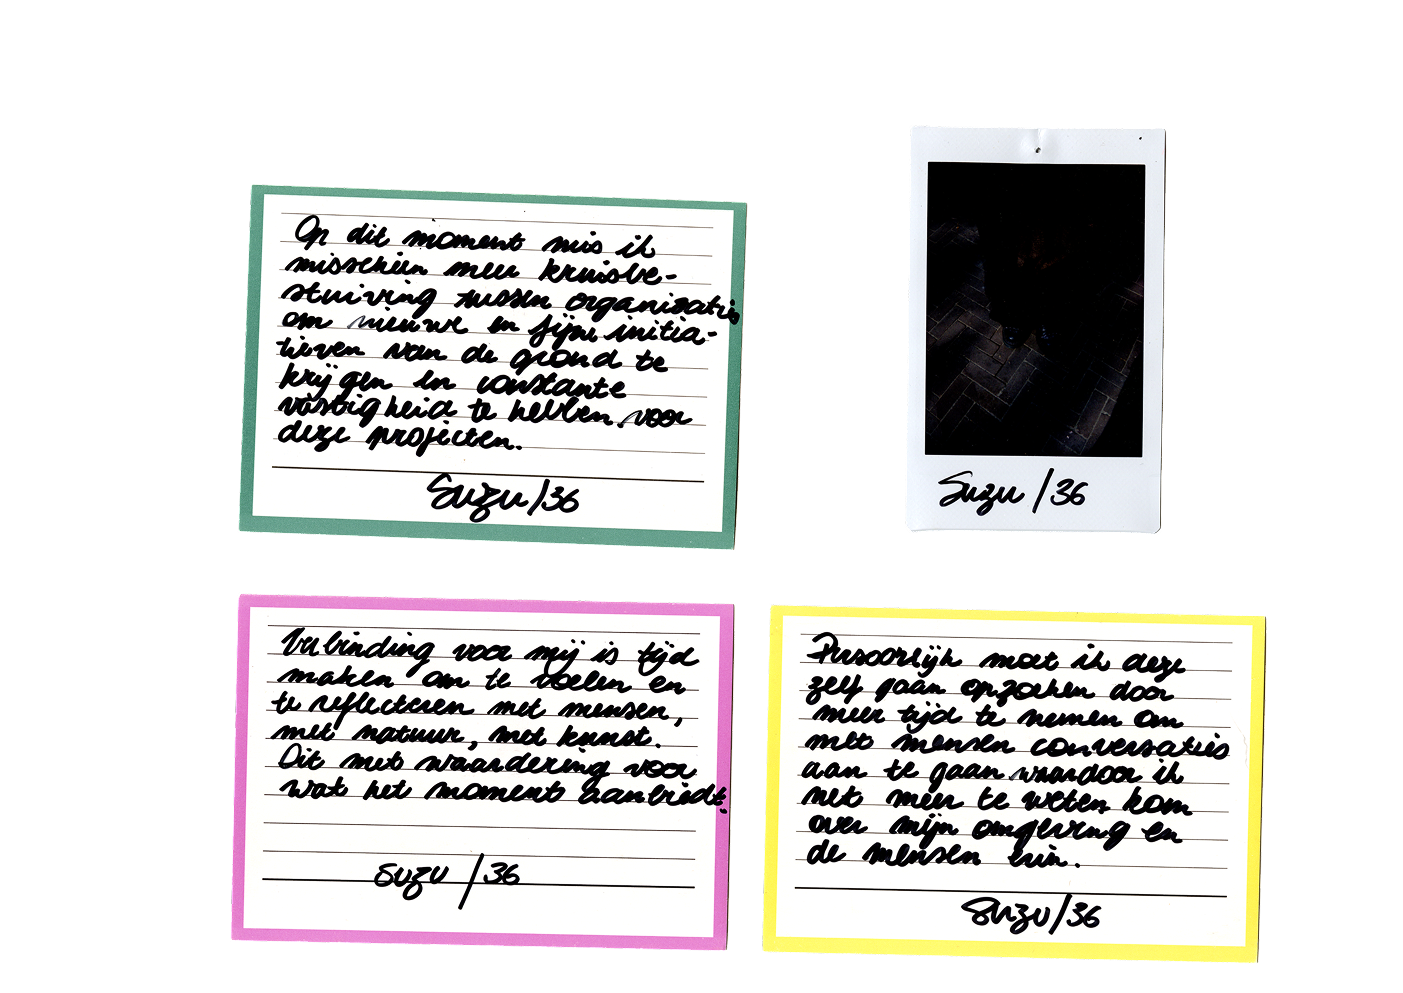 Op dit moment mis ik
misschien meer kruisbe-
stuiving tussen organisaties
om nieuwe en fijne initia-
tieven van de grond te
krijgen en constante
vastigheid te hebben voor
deze projecten.
Suzu/36
Suzu/36
Verbinding voor mij is tijd
maken om te voelen en
te reflecteren met mensen,
met natuur, met kunst.
Dit met waardering voor
wat het moment aanbiedt.
Suzu/36
Persoonlijk moet ik deze
zelf gaan opzoeken door
meer tijd te nemen om
met mensen conversaties
aan te gaan waardoor ik
net meer te weten kom
over mijn omgeving en
de mensen erin.
Suzu/36